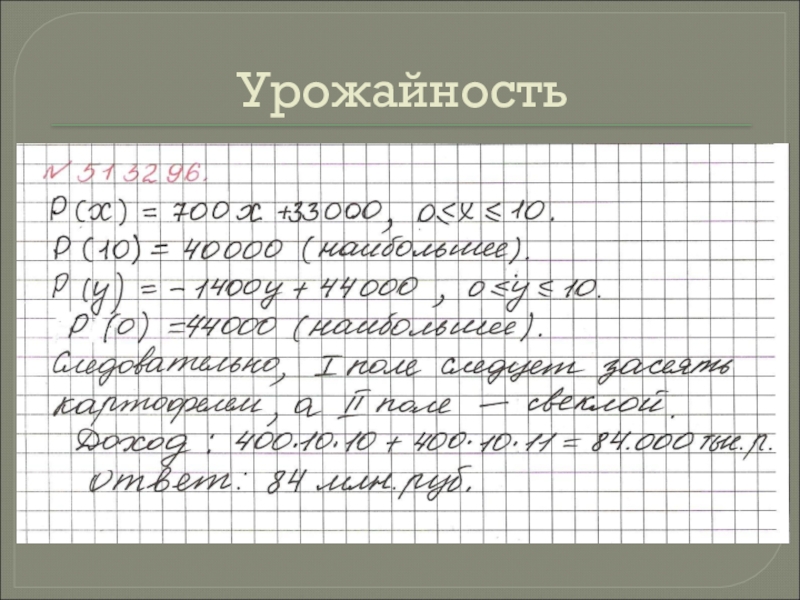 Урожайность
№ 513296.
P(x) = 700x +33000, 0≤x≤10.
P(10) = 40000 (наибольшее).
P(y) = -1400y + 44000, 0≤y≤10.
P(0) =44000 (наибольшее).
Следовательно, I поле следует засеять
картофелем, а II поле — свеклой.
Доход: 400·10·10 + 400·10·11 = 84.000 тыс.р.
Ответ: 84 млн.руб.